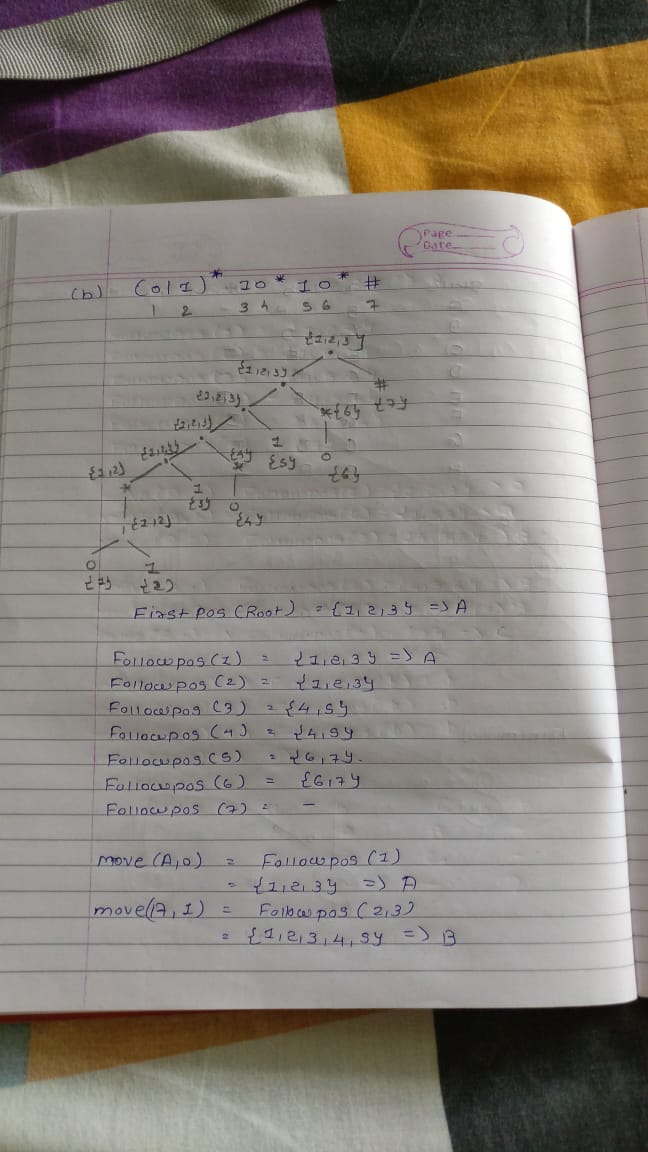 Page
Date
(b) (0|1)* 10* 10* #
1 2 3 4 5 6 7
{1,2,3}
{1,2,3}
#
{7}
{1,2,3}
* {6}
{1,2,3}
1
{5}
0
{6}
{1,2,3}
{4}
*
{1,2}
*
1
{3}
0
{4}
| {1,2}
0
{1}
1
{2}
First pos (Root) = {1,2,3} => A
Followpos (1) = {1,2,3} => A
Followpos (2) = {1,2,3}
Followpos (3) = {4,5}
Followpos (4) = {4,5}
Followpos (5) = {6,7}.
Followpos (6) = {6,7}
Followpos (7) = -
move (A,0) = Followpos (1)
= {1,2,3} => A
move(A,1) = Followpos (2,3)
= {1,2,3,4,5} => B